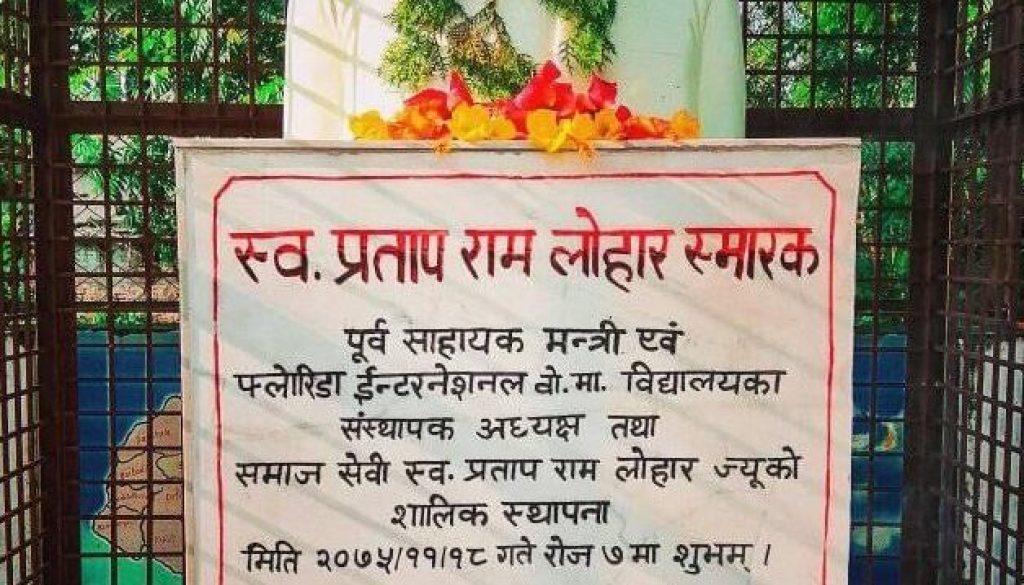 स्व. प्रताप राम लोहार स्मारक
पूर्व साहायक मन्त्री एवं
फ्लोरिडा ईन्टरनेशनल वो. मा. विद्यालयका
संस्थापक अध्यक्ष तथा
समाज सेवी स्व. प्रताप राम लोहार ज्यूको
शालिक स्थापना
मिति २०७५/११/१८ गते रोज ७ मा शुभम् ।